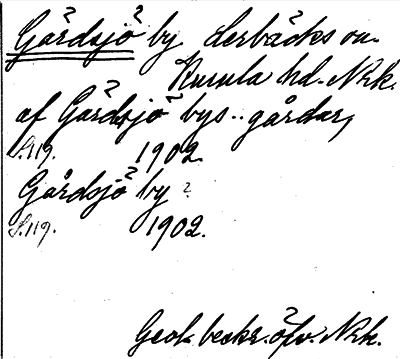 Gårdsjö by Lerbäcks sn.
Kumla hd. Nrk.
af Gårdsjö bys .. gårdar,
S. 119. 1902.
Gårdsjö by
S. 119. 1902.
Geol. beskr. öfv. Nrk.